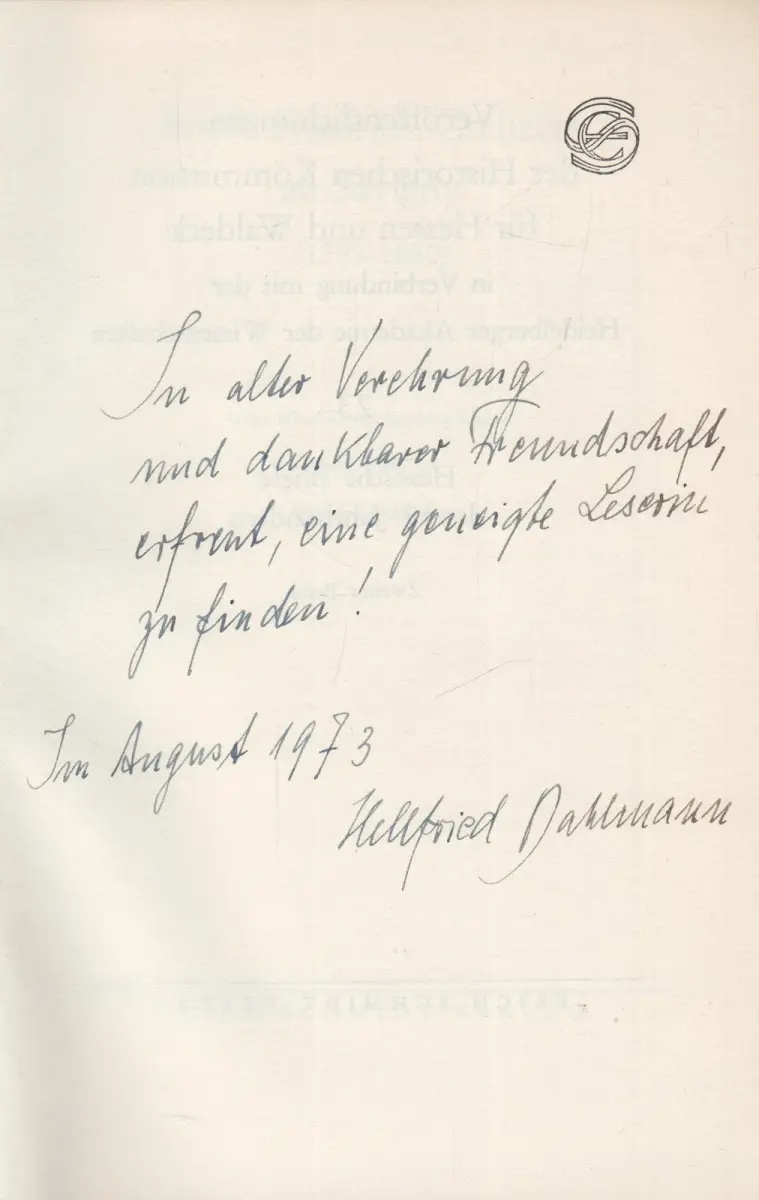 In alter Verehrung
und dankbarer Freundschaft,
erfreut, eine geneigte Leserin
zu finden!
Im August 1973
Hellfried Dahlmann
Veröffentlichungen
der Historischen Kommission
für Hessen und Waldeck
in Verbindung mit der
Heidelberger Akademie der Wissenschaften